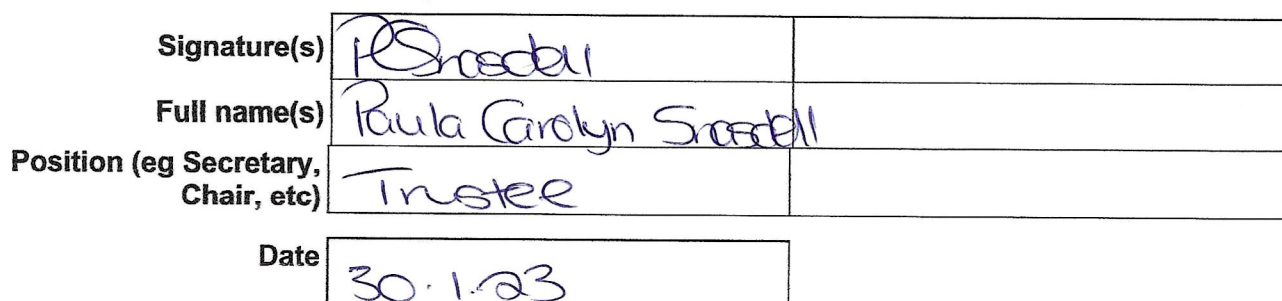 Signature(s) PSnasdell
Full name(s) Paula Carolyn Snasdell
Position (eg Secretary,
Chair, etc) Trustee
Date 30.1.23